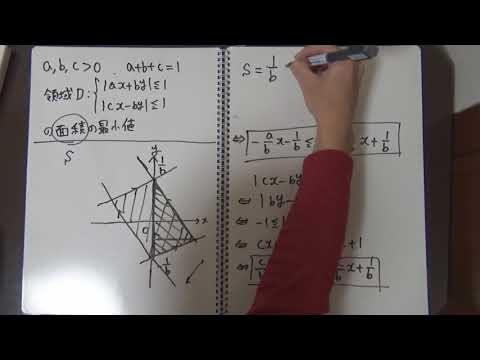 a, b, c > 0 . a+b+c=1
領域D: { |ax+by|≦1
|cx-by|≦1
の面積の最小値
S
y
1/b
x
0
1/b
S = 1/b
⇔ -a/b x - 1/b ≦ x + 1/b
|cx-by
⇔ |by-
⇔ -1≦
⇔ cx +1
⇔ c/b x + 1/b